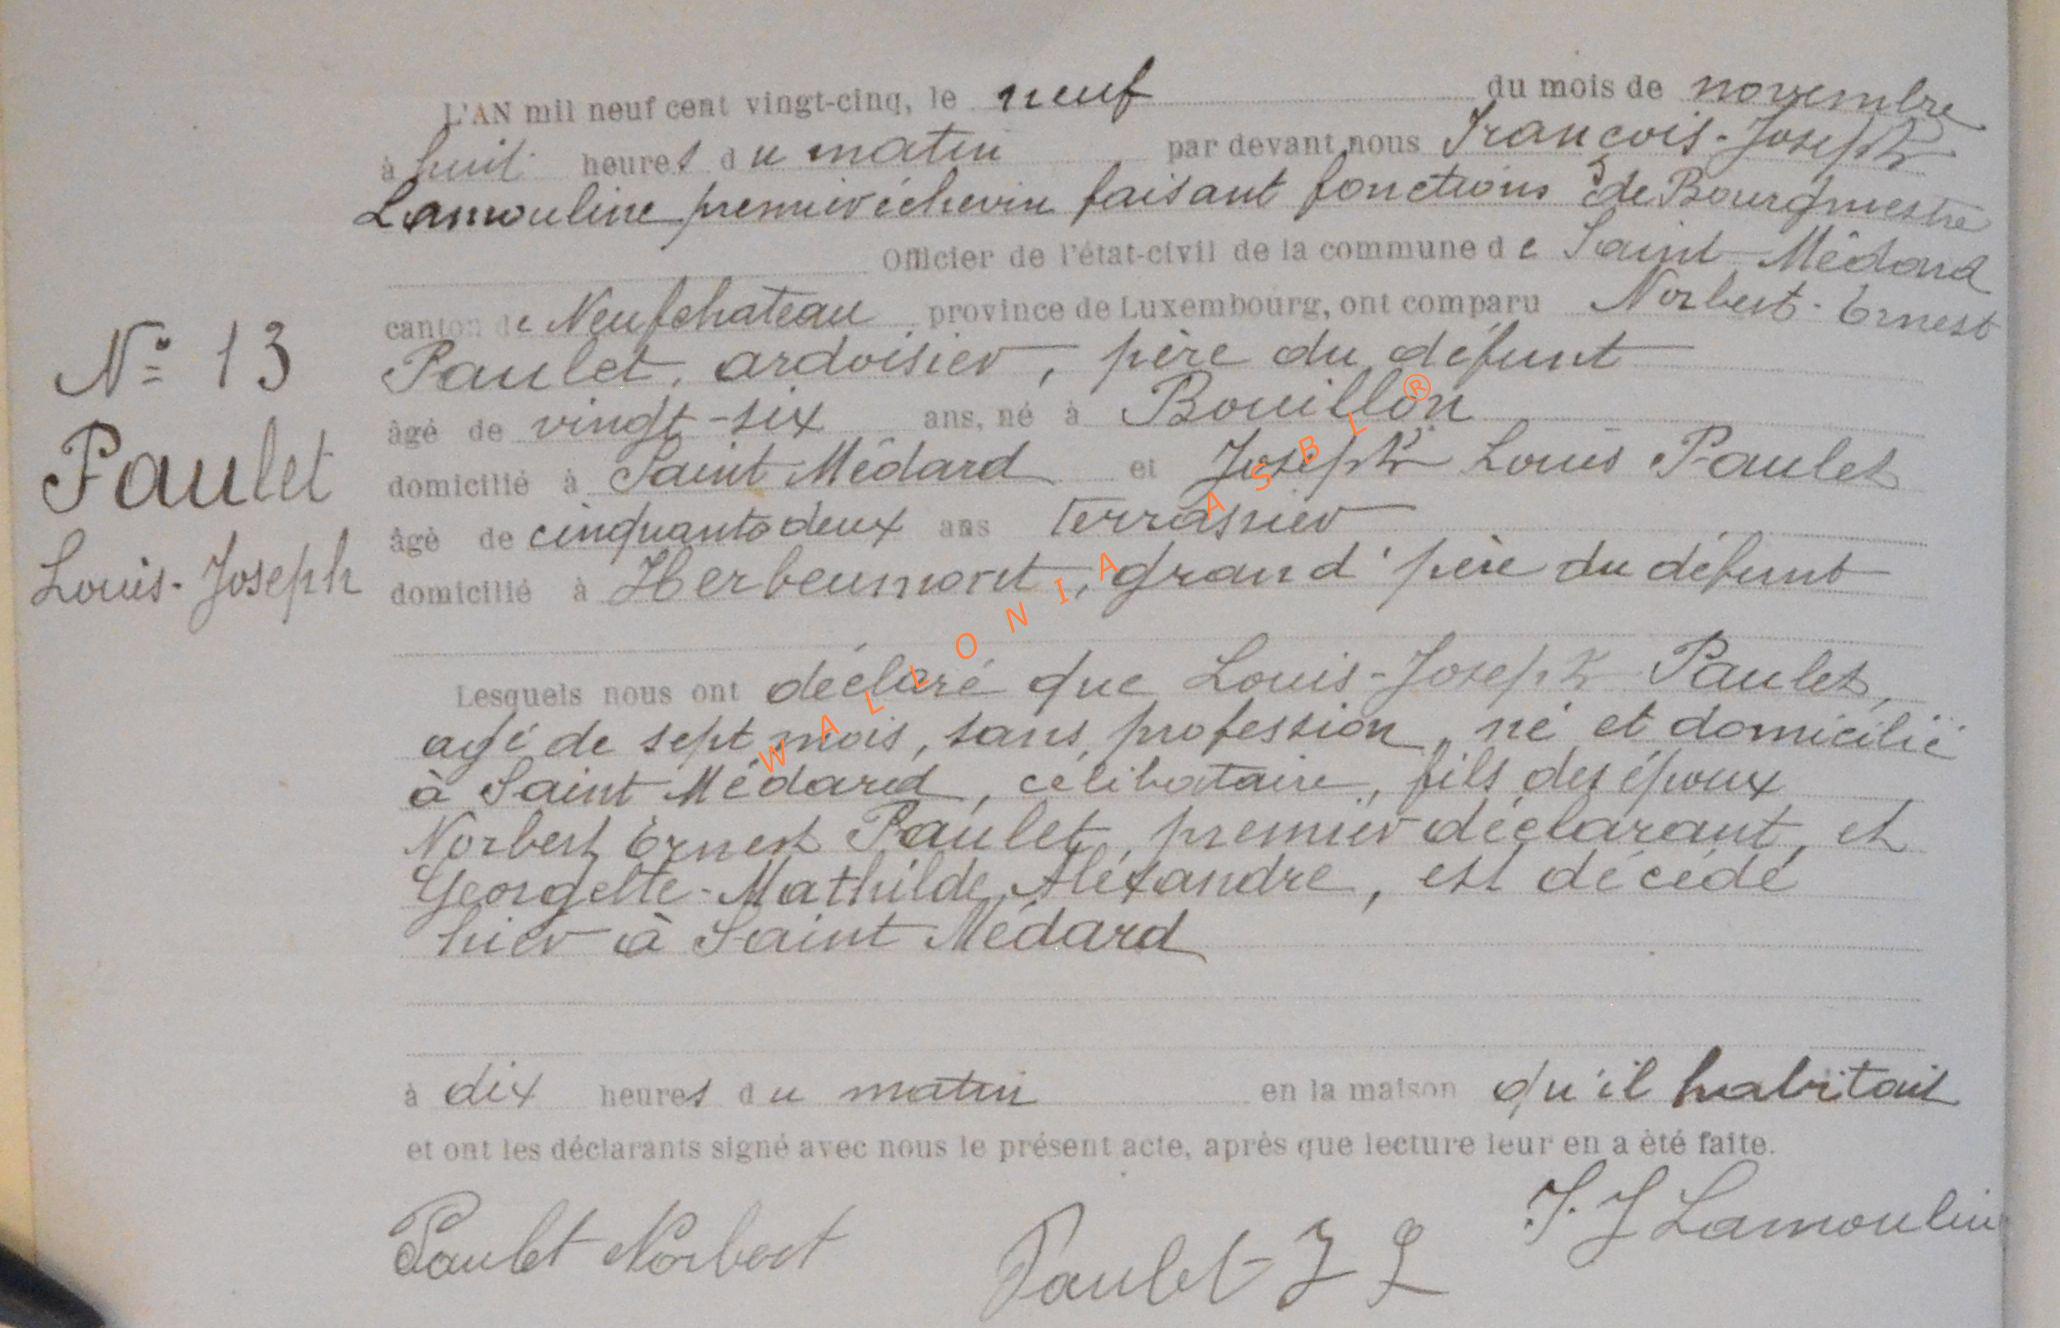 L'AN mil neuf cent vingt-cinq, le neuf du mois de novembre
à huit heures du matin par devant nous Francois-Joseph
Lamouline premier échevin faisant fonctions de Bourgmestre
Officier de l'état-civil de la commune de Saint Médard
canton de Neufchateau province de Luxembourg, ont comparu Norbert-Ernest
Paulet, ardoisier, père du défunt
N° 13
âgé de vingt-six ans, né à Bouillon
Paulet
domicilié à Saint Médard et Joseph Louis Paulet
âgé de cinquante deux ans Terrassier
Louis-Joseph
domicilié à Herbeumont, grand'père du défunt
Lesquels nous ont déclaré que Louis-Joseph Paulet,
agé de sept mois, sans profession, né et domicilié
à Saint Médard, célibataire, fils des époux
Norbert Ernest Paulet, premier déclarant, et
Georgette-Mathilde Alexandre, est décédé
hier à Saint Médard
à dix heures du matin en la maison qu'il habitait
et ont les déclarants signé avec nous le présent acte, après que lecture leur en a été faite.
Paulet Norbert Paulet J L F. J Lamouline
WALLONIA ASBL®